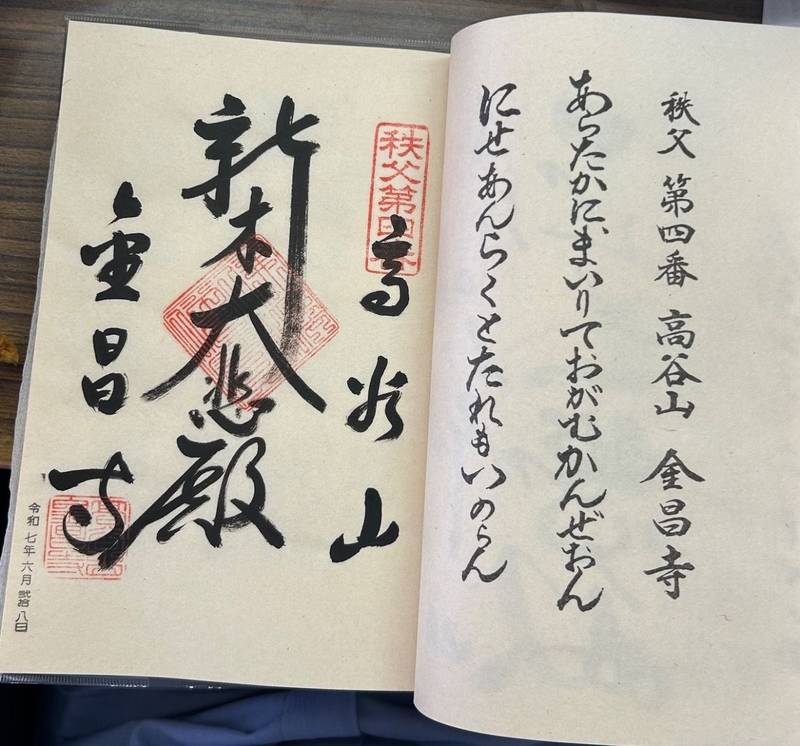 秩父 第四番 高谷山 金昌寺
あらたかにまいりておがむかんぜおん
にせあんらくとたれもいのらん
秩父第四番
高谷山
新木大悲殿
金昌寺
令和七年六月弐拾八日